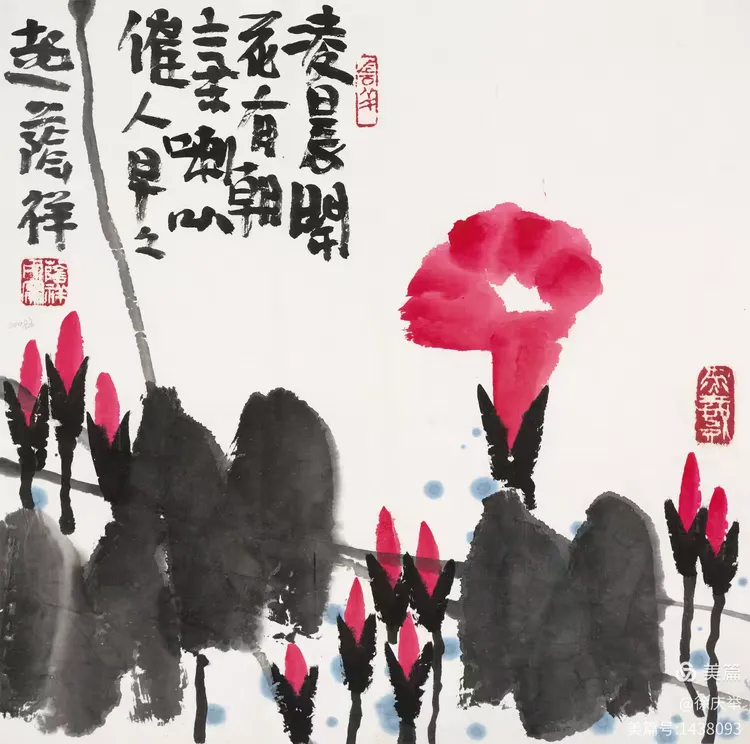 凌晨開
花有朝
氣喇叭
催人早々
起蔭祥
美篇
@徐庆举
美篇号:1438093